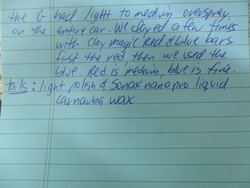 the G had light to medium overspray
on the entire car. We clayed a few times
with Clay magic Red & blue bars
first the red then we used the
blue. Red is medium, blue is fine.
tails: light polish & Sonax nano pro liquid
carnauba wax